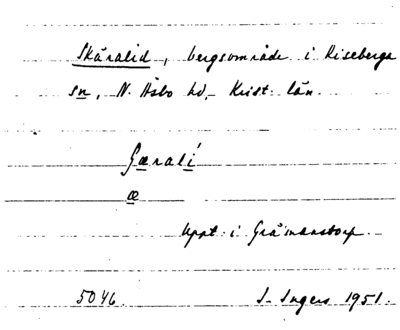 Skäralid, bergsområde i Riseberga
sn, N. Åsbo hd, Krist. län.
Gærali
æ
Uppt. i Gråmanstorp.
5046. I. Ingers 1951.